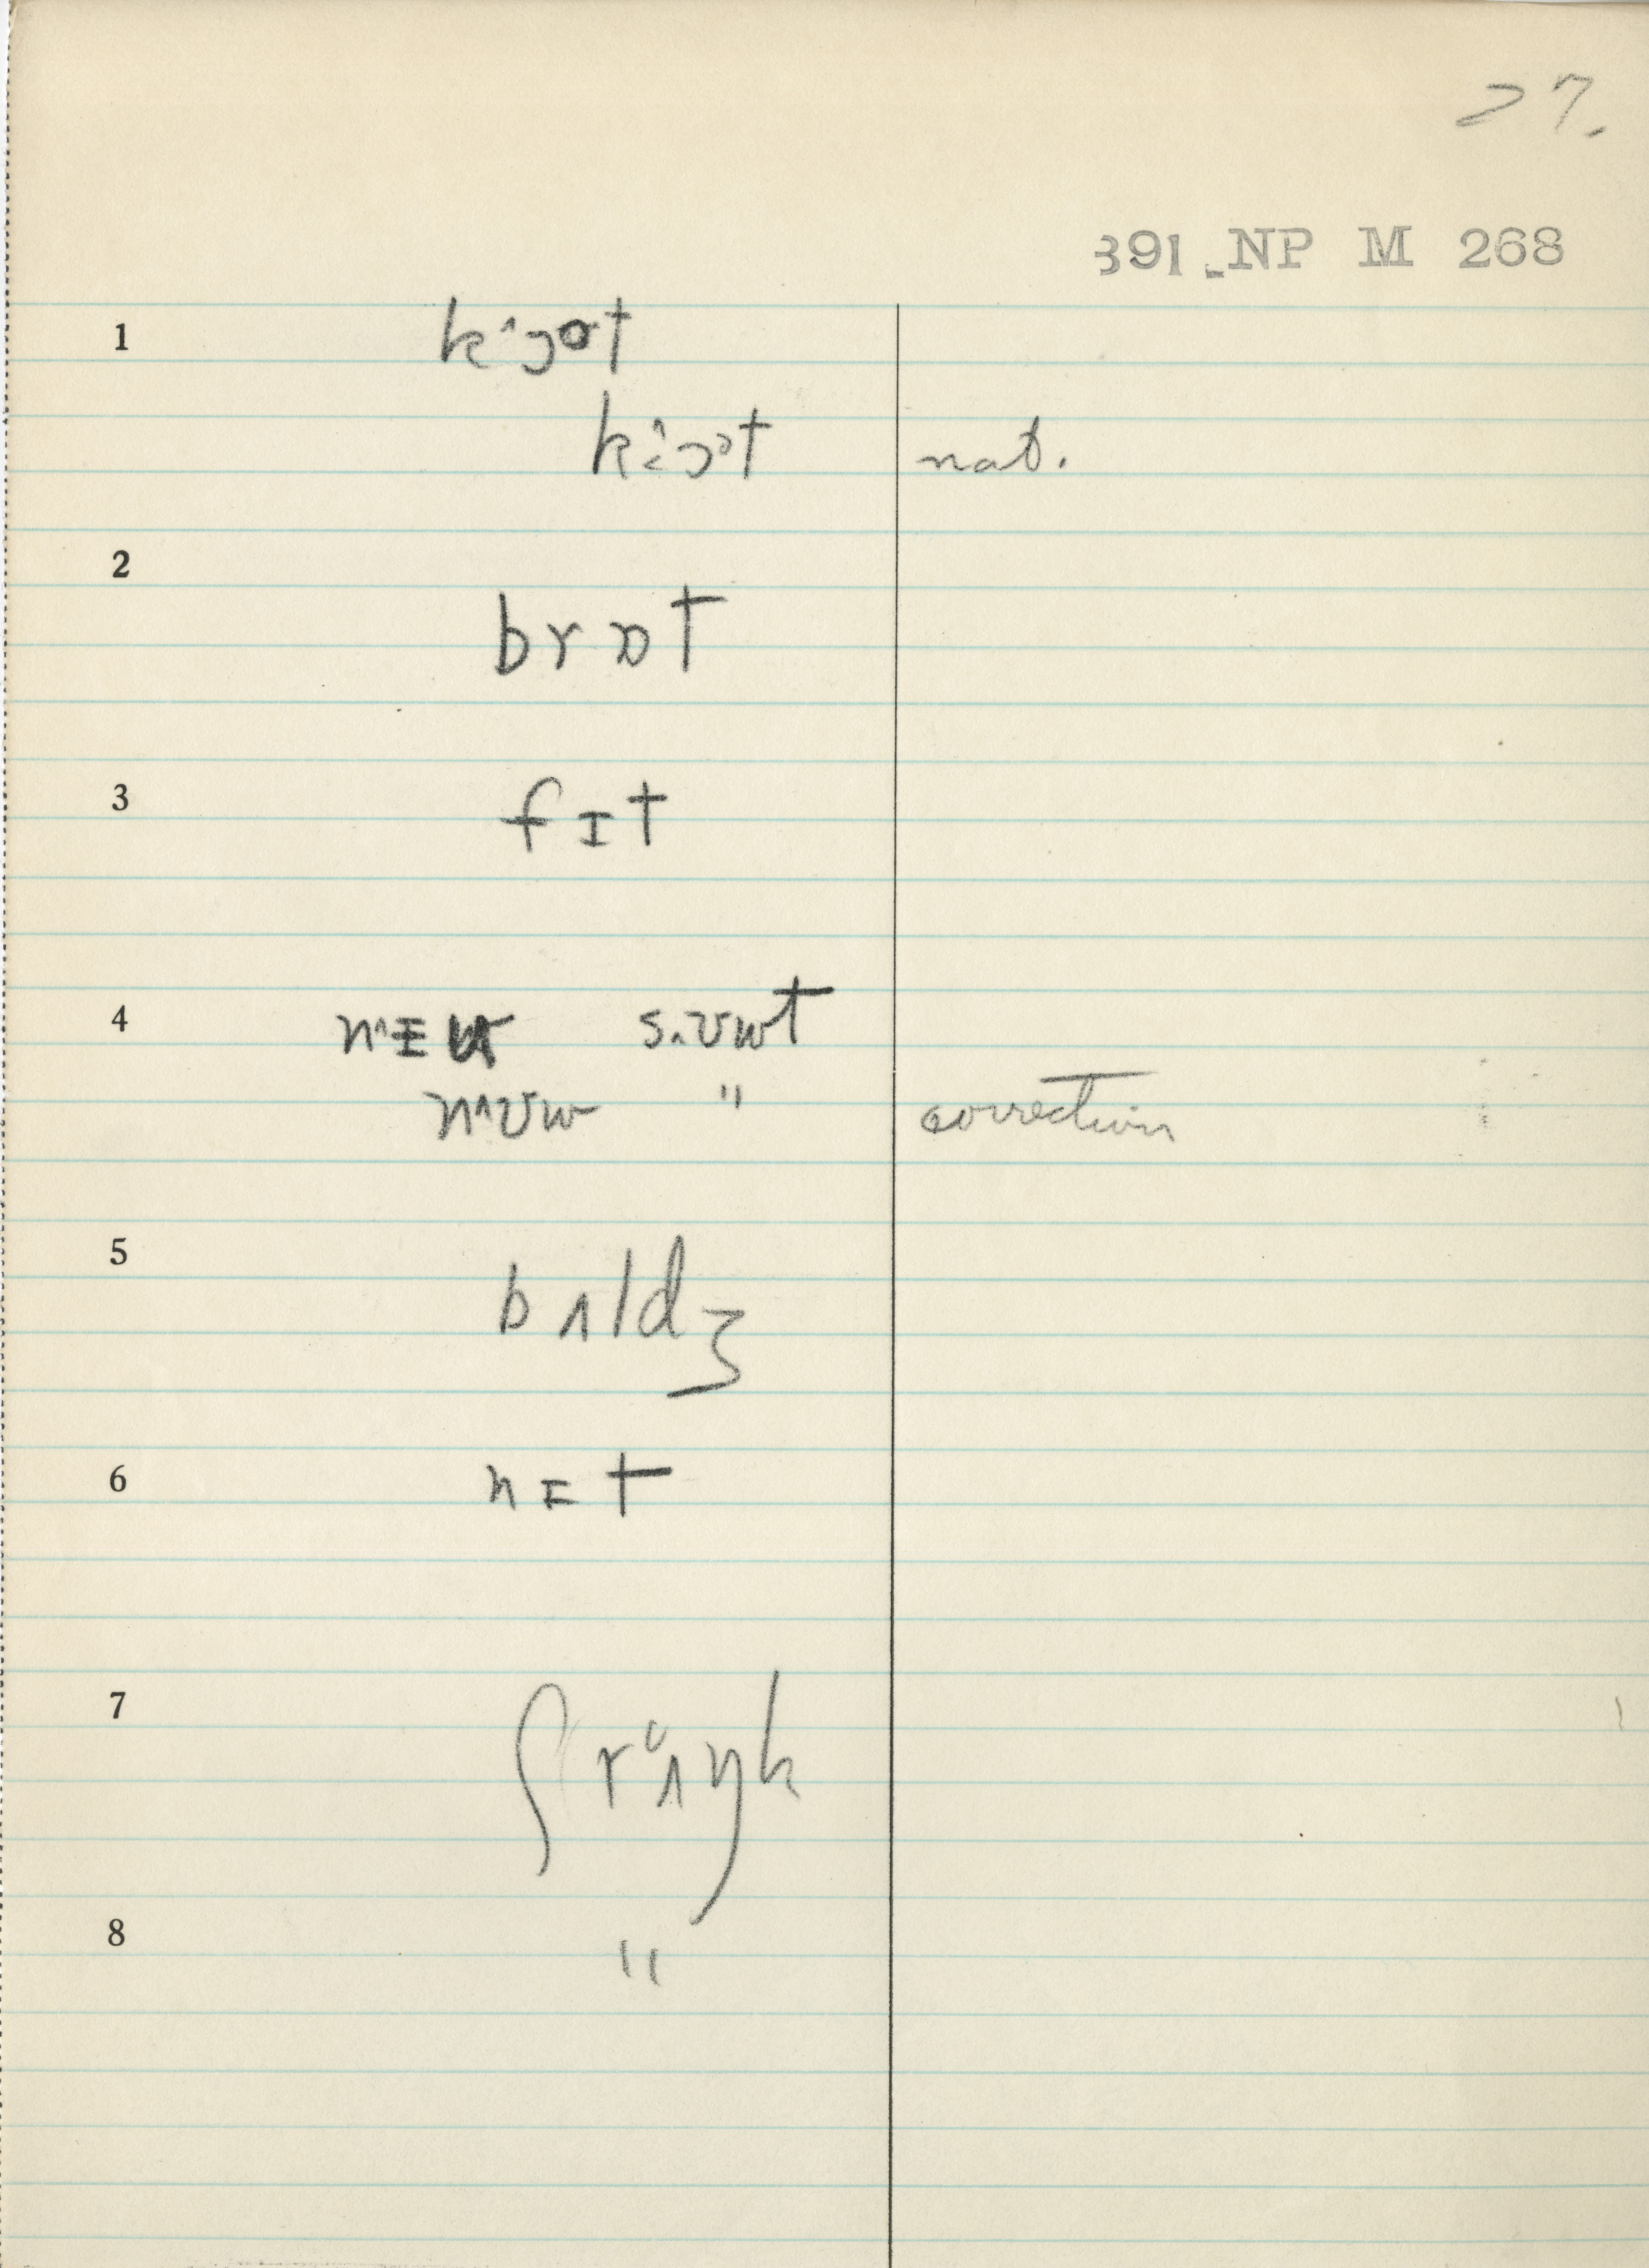 27.
391 NP M 268
1 k^ɔot
k^ɔɔt nat.
2 brɒt
3 fɪt
4 s.ʊwt
n^ʊw " correction
5 bʌldʒ
6 nɪt
7 ʃrʌŋk
8 "